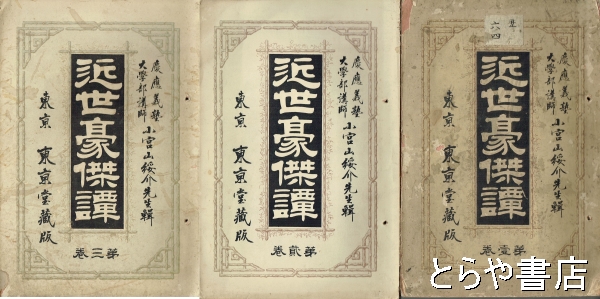 慶應義塾
大學部講師 小宮山綏介先生輯
近世豪傑譚
東京 東京堂藏版
第三卷
慶應義塾
大學部講師 小宮山綏介先生輯
近世豪傑譚
東京 東京堂藏版
第貳卷
六四
慶應義塾
大學部講師 小宮山綏介先生輯
近世豪傑譚
東京 東京堂藏版
第壹卷
とらや書店